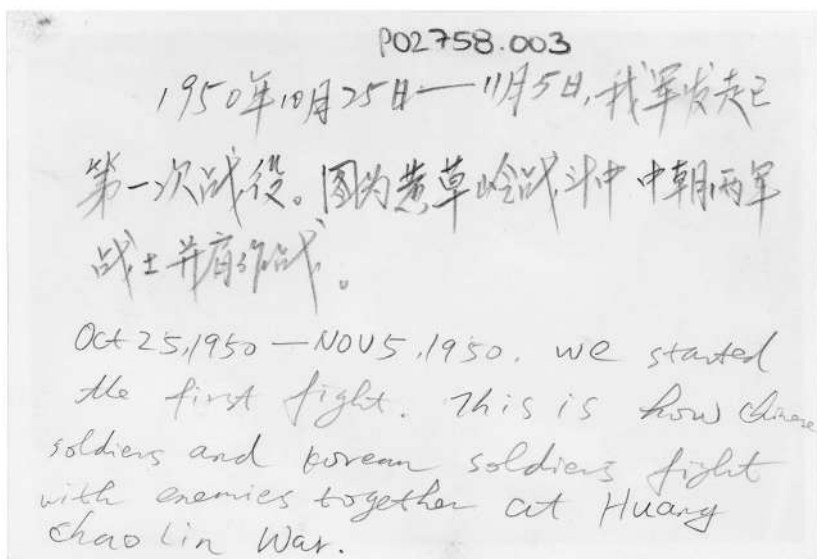 P02758.003
1950年10月25日—11月5日,我军发起
第一次战役。图为黄草岭战斗中 中朝两军
战士并肩作战。
Oct 25,1950—NOV5,1950. we started
the first fight. This is how chinese
soldiers and korean soldiers fight
with enemies together at Huang
chao Lin War.